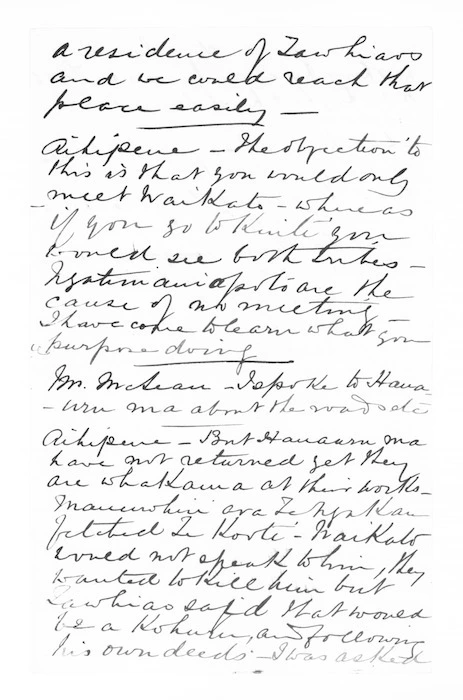 a residence of Tawhiaos
and we could reach that
place easily —
Aihipene — The objection to
this is that you would only
meet Waikato — whereas
if you go to Kuiti you
would see both tribes —
Ngatimaniapoto are the
cause of no meeting
I have come to learn what you
purpose doing
Mr. McLean — I spoke to Hauau-
-uru ma about the roads etc
Aihipene — But Hauauru ma
have not returned yet they
are whakama at their works —
Manuwhiri ara Te Ngakau
fetched Te Kooti — Waikato
would not speak to him, they
wanted to kill him but
Tawhiao said that would
be a Kohuru, and following
his own deeds — I was asked